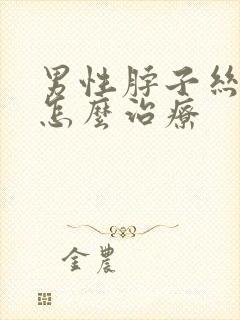 男性脖子絲
怎麼治療
金農